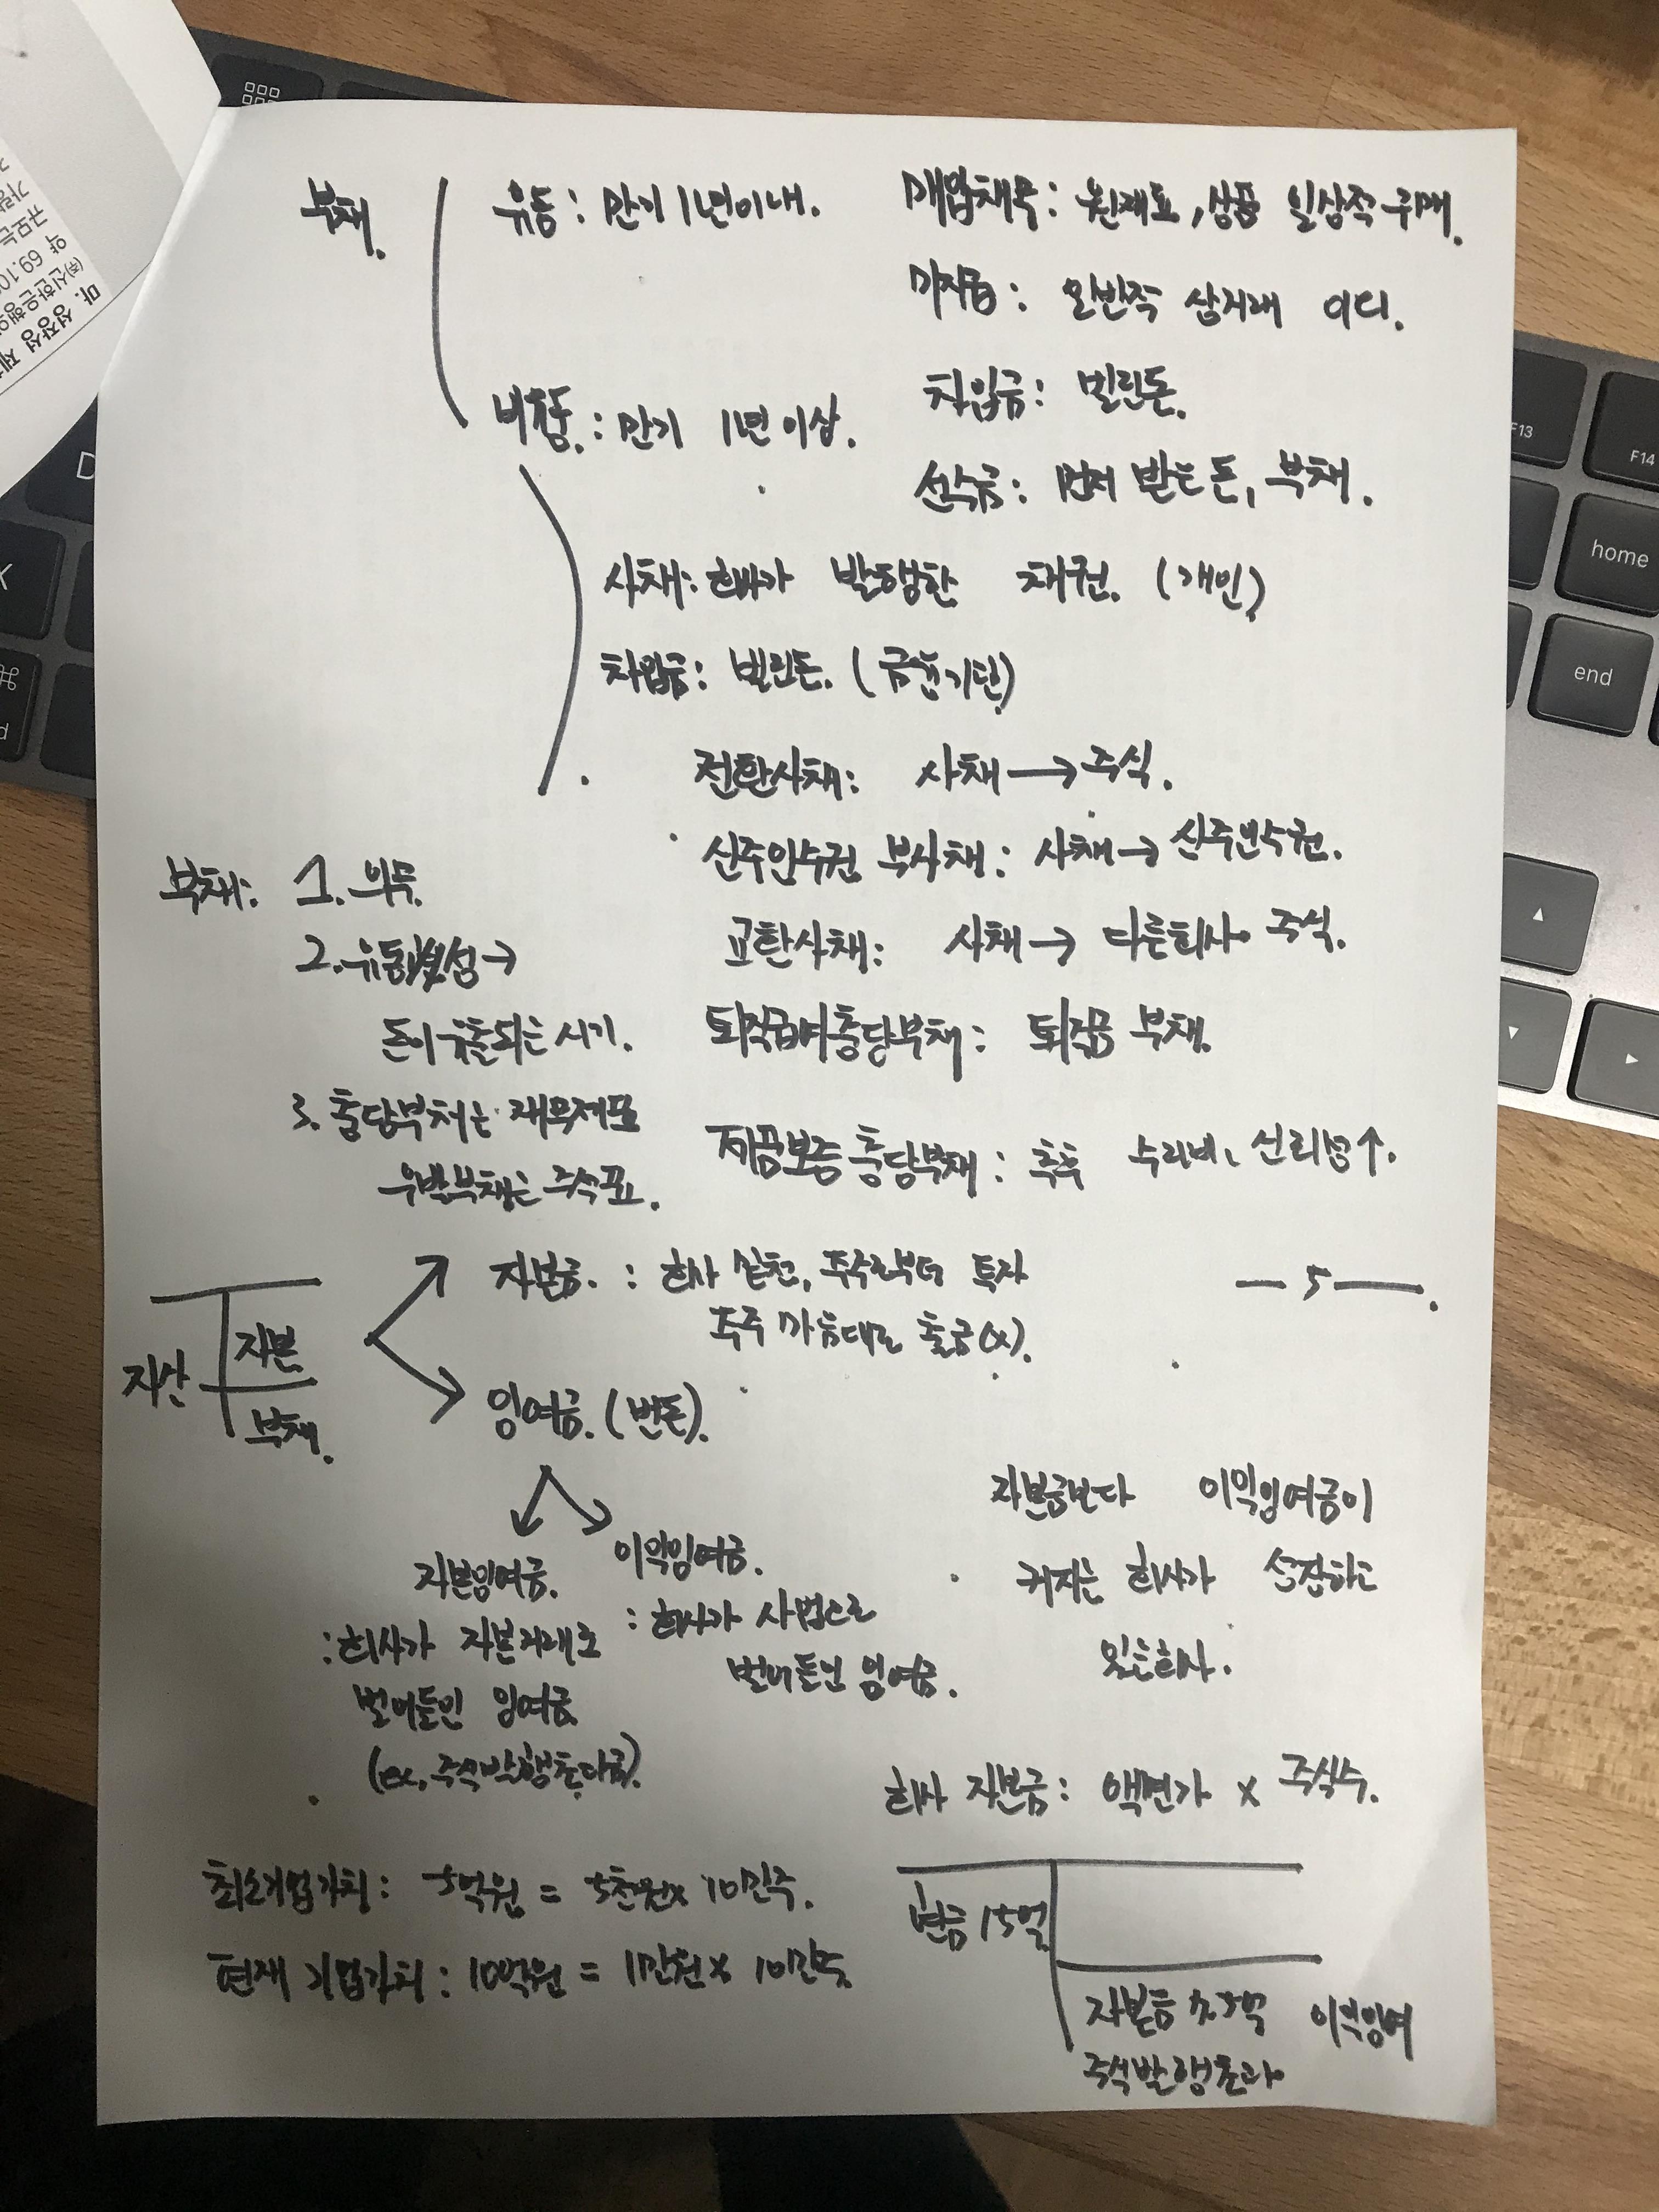 부채.
유동: 만기 1년이내.
매입채무: 원재료, 상품 일상적 구매.
미지급: 일반적 상거래 이외.
차입금: 빌린돈.
비유동.: 만기 1년 이상.
선수금: 먼저 받은 돈, 부채.
사채: 회사가 발행한 채권. (개인)
차입금: 빌린돈. (금융기관)
전환사채: 사채 → 주식.
신주인수권 부사채: 사채 → 신주인수권.
교환사채: 사채 → 다른회사 주식.
퇴직급여충당부채: 퇴직금 부채.
제품보증충당부채: 추후 수리비, 신뢰성↑.
부채: 1. 의무.
2. 유동 →
돈이 유출되는 시기.
3. 충당부채는 재무제표
우발부채는 주석표.
자산
자본
부채.
자본금. : 회사 실천, 주주로부터 투자
주주 마음대로 출금(x).
— 5 —.
잉여금. (번돈).
자본잉여금.
: 회사가 자본거래로
벌어들인 잉여금
(ex, 주식발행초과금).
이익잉여금.
: 회사가 사업으로
벌어들인 잉여금.
자본금보다 이익잉여금이
커지는 회사가 성장하고
있는회사.
회사 자본금: 액면가 x 주식수.
최소기업가치: 5억원 = 5천원 x 10만주.
현재 기업가치: 10억원 = 1만원 x 10만주
현금 15억
자본금 이익잉여
주식발행초과